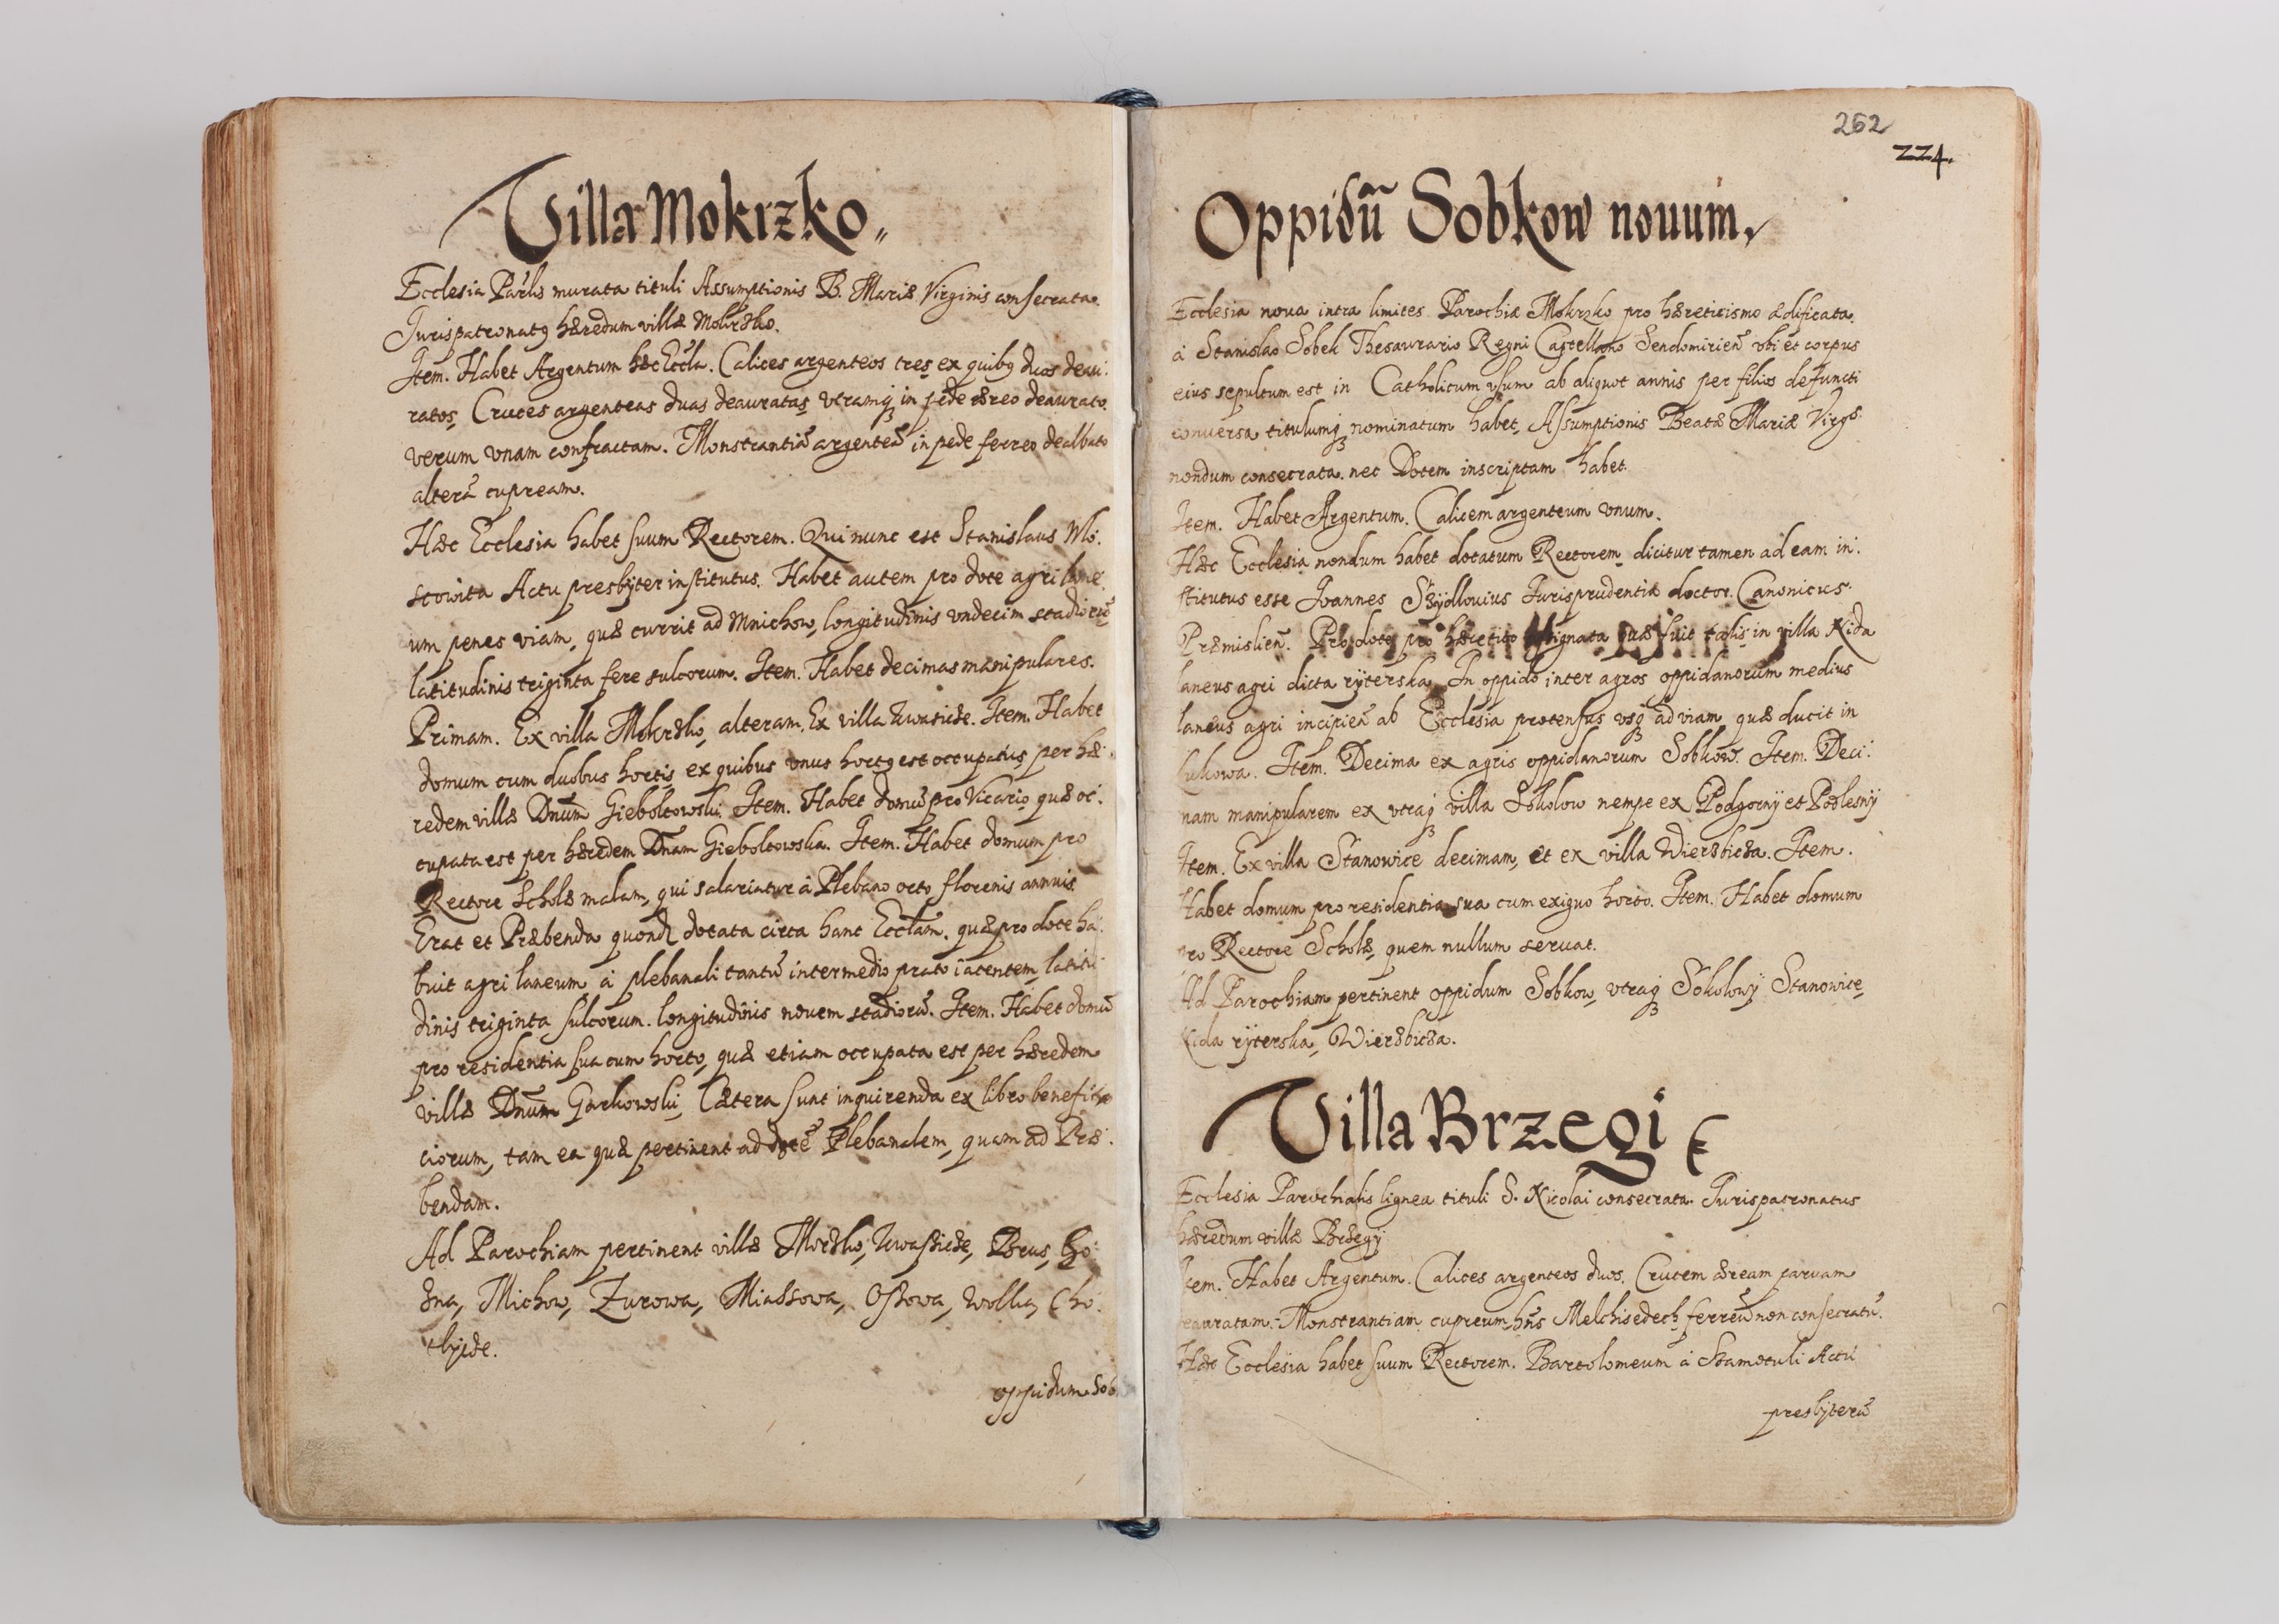 Villa Mokrzko
Ecclesia Parlis murata tituli Assumptionis B. Mariæ Virginis consecrata.
Jurispatronatus hæredum villæ Mokrzko.
Item. Habet Argentum hæc Eccla. Calices argenteos tres ex quibus duos deau:
ratos, Cruces argenteas duas deauratas, veramq in pede æreo deaurato
verum vnam confractam. Monstrantiã argenteã in pede ferreo dealbato
alterã cupream.
Hæc Ecclesia habet suum Rectorem. Qui nunc est Stanislaus Mo:
scowita Actu presbyter institutus. Habet autem pro dote agri lane
um penes viam, quæ currit ad Mnichow, longitudinis vndecim stadiorũ
latitudinis triginta fere sulcorum. Item. Habet decimas manipulares.
Primam. Ex villa Mokrzko, alteram. Ex villa . Item. Habet
domum cum duobus hortis ex quibus vnus hortus est occupatus per hæ:
redem villæ Dnum Gieboltowski. Item. Habet domũ pro Vicario quæ oc:
cupata est per hæredem Dnam Gieboltowska. Item. Habet domum pro
Rectore Scholæ malam, qui salariatur à Plebano octo florenis annuis
Erat et Præbenda quond dotata circa hanc Ecclam. quæ pro dote ha:
buit agri laneum à plebanali tantũ intermedio prato iacentem, latitu
dinis triginta sulcorum. longitudinis novem stadiorũ. Item. Habet domũ
pro residentia sua cum horto, quæ etiam occupata est per hæredem
villæ Dnum Garkowski, Cætera sunt inquirenda ex libro benefi
ciorum, tam ea quæ pertinent ad dotẽ Plebanalem, quam ad Præ:
bendam.
Ad Parochiam pertinent villæ , , Brus,
zna, Michow, Zurowa, Miassova, Ossowa, Wolka, Cho:

oppidum Sob
262
224.
Oppidũ Sobkow nouum
Ecclesia noua intra limites Parochiæ Mokrzko pro hæreticismo ædificata
à Stanislao Sobek Thesaurario Regni Castellano Sendomirieñ vbi et corpus
eius sepultum est in Catholicum vsum ab aliquot annis per filios defuncti
conversa titulumq nominatum habet, Assumptionis Beatæ Mariæ Virgs
nondum consecrata. nec Dotem inscriptam habet.
Item. Habet Argentum. Calicem argenteum vnum.
Hæc Ecclesia nondum habet dotatum Rectorem, dicitur tamen ad eam in:
stitutus esse Joannes Szydlovius Jurisprudentiæ doctor. Canonicus.
Præmislieñ. Pro dote pro hæretico assignata quæ fuit talis in villa Nida
laneus agri dicta ryterska. In oppido inter agros oppidanorum medius
laneus agri incipieñ ab Ecclesia protensus vsq ad viam quæ ducit in
Lukowa. Item. Decima ex agris oppidanorum Sobkow. Item. Deci:
mam manipularem ex vtraq villa Sokolow nempe ex Podgorny et Podlesny
Item. Ex villa Stanowice decimam, et ex villa Wierzbicza. Item.
Habet domum pro residentia sua cum exiguo horto. Item. Habet domum
pro Rectore Scholæ, quem nullum seruat.
Ad Parochiam pertinent oppidum Sobkow, vtraq Sokolowy Stanowice,
Nida ryterska, Wierzbicza.
Villa Brzegi
Ecclesia Parochialis lignea tituli S. Nicolai consecrata. Jurispatronatus
hæredum villæ Brzegy
Item. Habet Argentum. Calices argenteos duos. Crucem æream paruam
deauratam. Monstrantiam cupream, hñs Melchisedech ferreũ non consecratũ.
Hæc Ecclesia habet suum Rectorem. Bartolomeum à Szamotuli Actu
presbyterũ